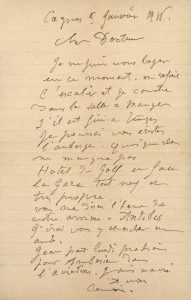 Cagnes 5 janvier 1916
Cher Docteur
Je ne puis vous loger
en ce moment. on refait
l'escalier et je couche
dans la salle à manger
s'il est fini à temps
Je pourrai vous éviter
l'auberge. quoiqu'elle
ne manque pas
Hotel du Golf en face
la Gare tout neuf et
très propre.
l'heure de
votre arrivée à Antibes
J'irai vous y chercher en
auto.
Jean part lundi prochain
pour Ambérieu dans
l'aviation.
Renoir.